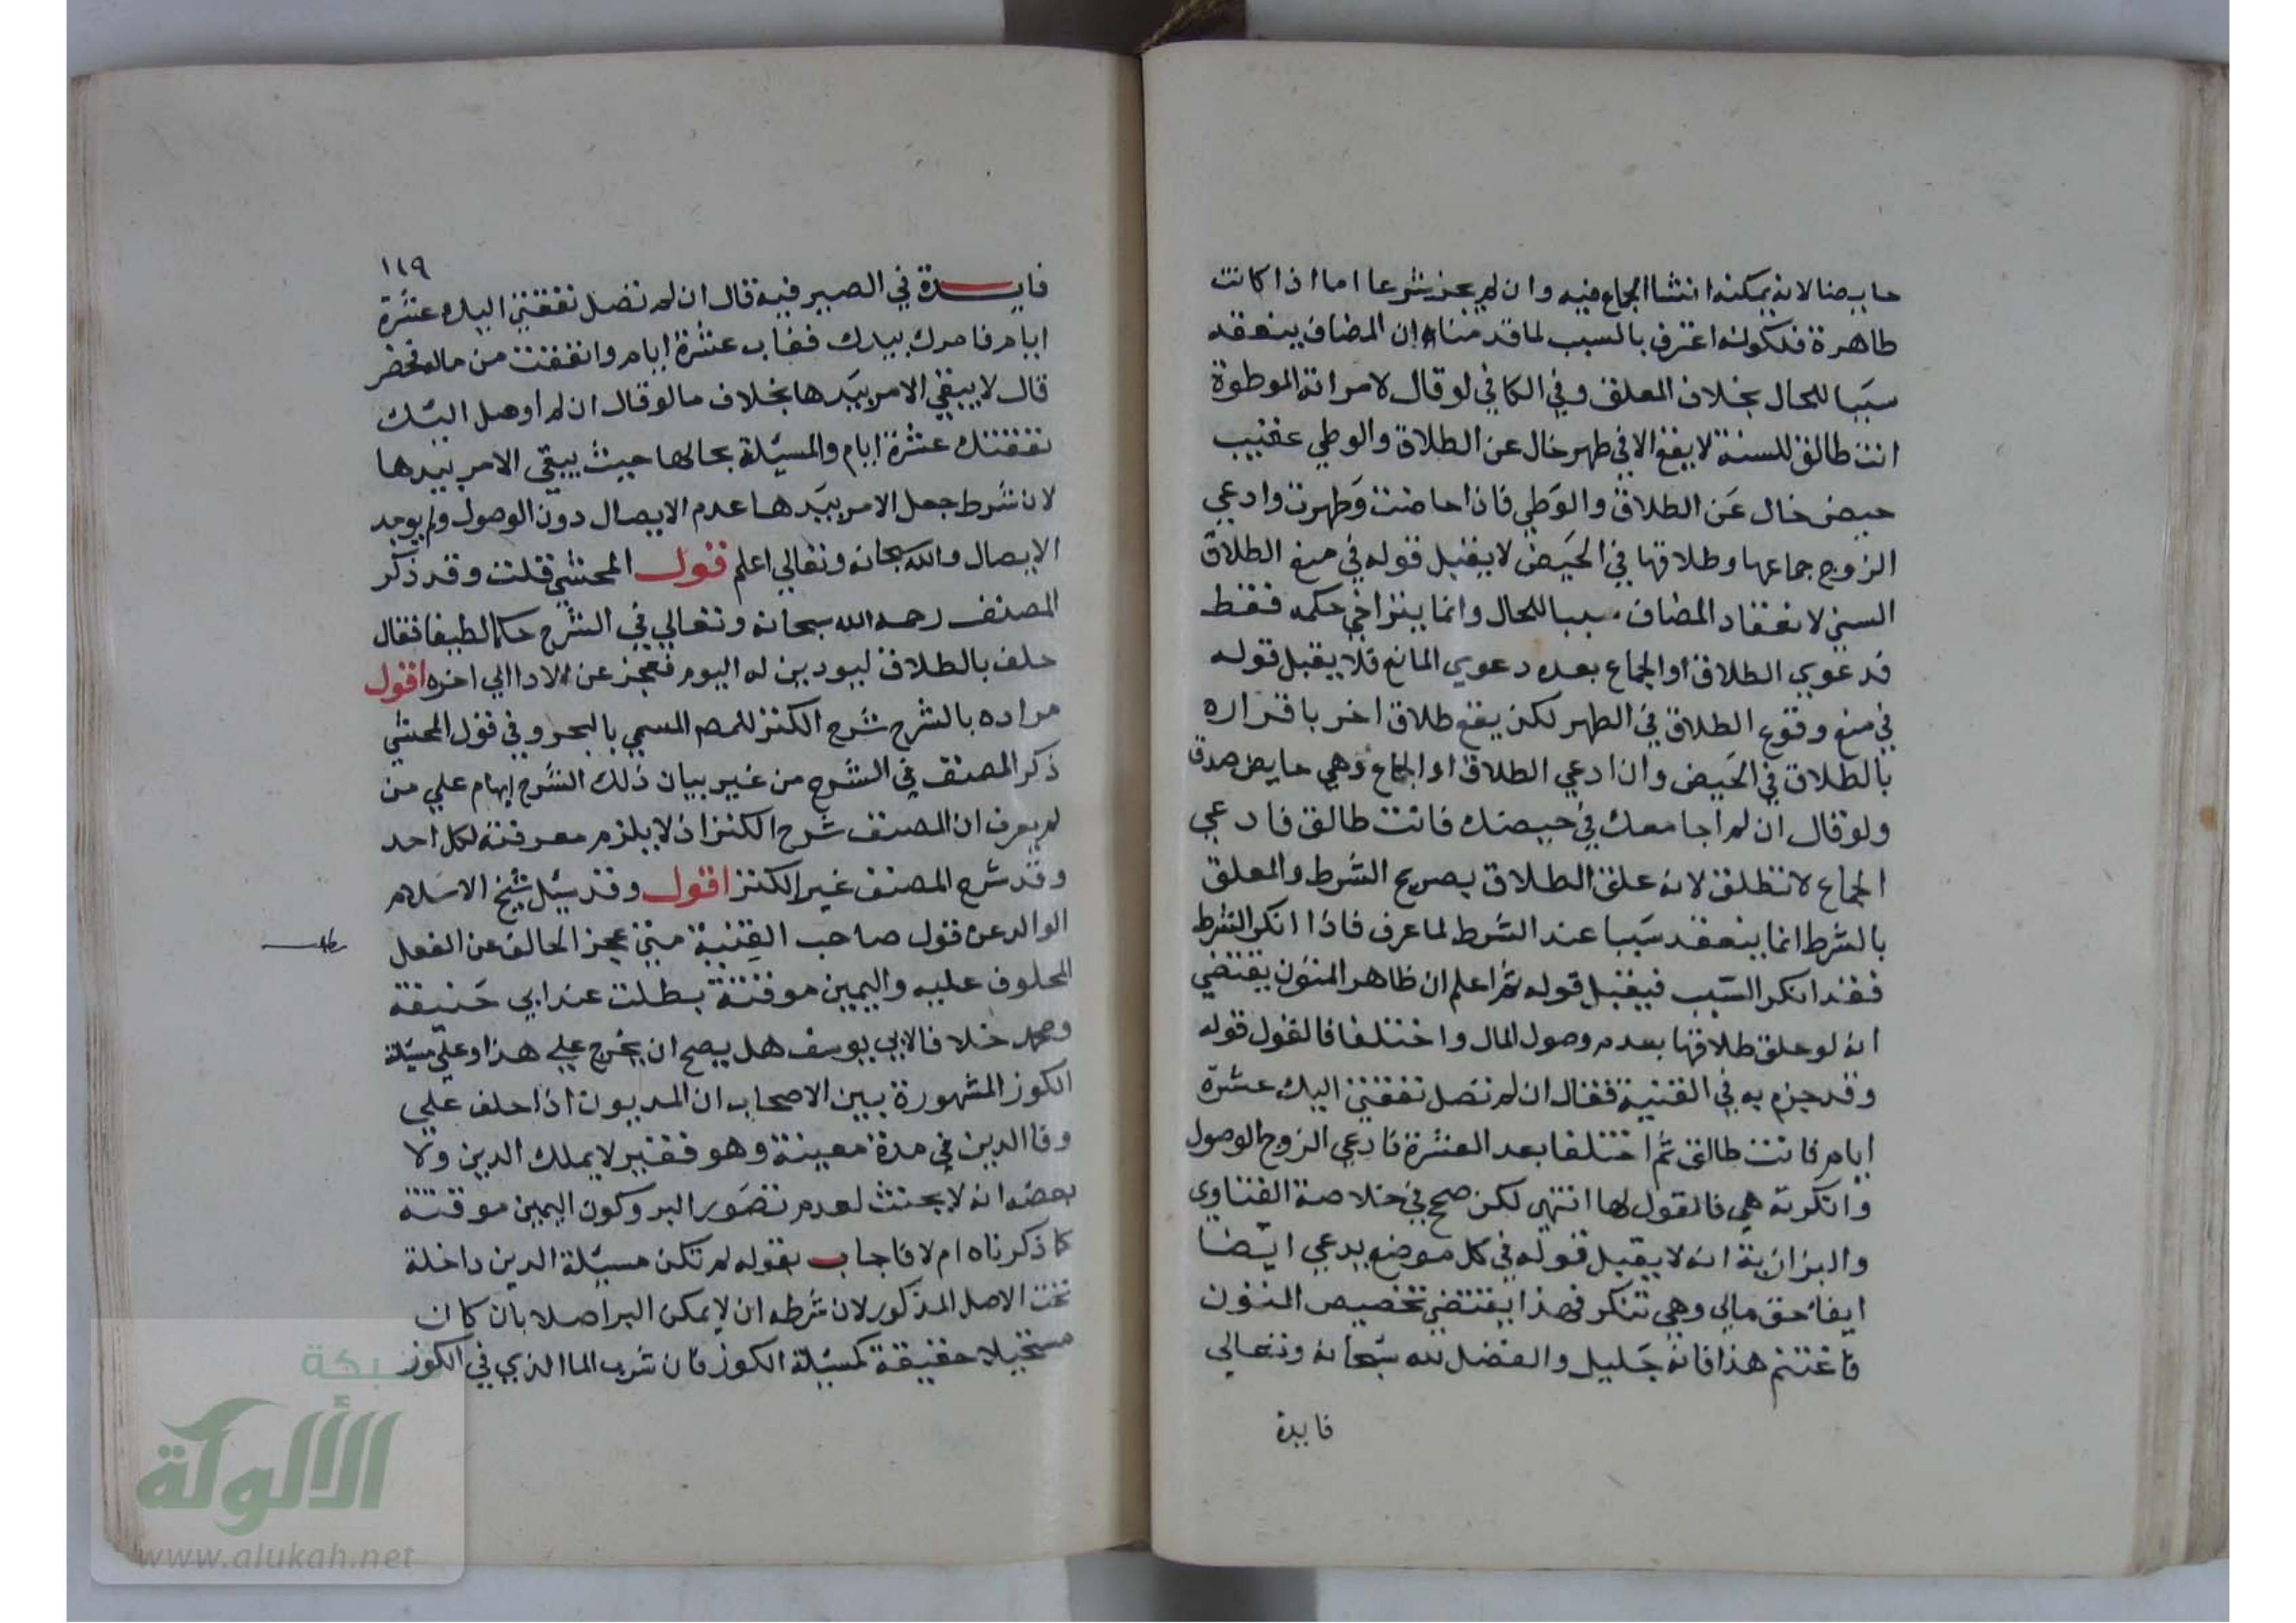 حايضا لانه يمكنه انشا الجماع فيه وان لم يجز شرعا اما اذا كانت
طاهرة فلكونه اعترف بالسبب لما قدمناه ان المضاف ينعقد
سببا للحال بخلاف المعلق وفي الكافي لو قال لامراته الموطوة
انت طالق للسنة لا يقع الا في طهر خال عن الطلاق والوطي عقيب
حيض خال عن الطلاق والوطي فاذا حاضت وطهرت وادعي
الزوج جماعها وطلاقها في الحيض لا يقبل قوله في منع الطلاق
السني لانعقاد المضاف سببا للحال وانما يتراخي حكمه فقط
فدعوي الطلاق او الجماع بعده دعوي المانع فلا يقبل قوله
في منع وقوع الطلاق في الطهر لكن يقع طلاق اخر باقراره
بالطلاق في الحيض وان ادعي الطلاق او الجماع وهي حايض صدق
ولو قال ان لم اجامعك في حيضك فانت طالق فادعي
الجماع لا تطلق لانه علق الطلاق بصريح الشرط والمعلق
بالشرط انما ينعقد سببا عند الشرط لما عرف فاذا انكر الشرط
فقد انكر السبب فيقبل قوله ثم اعلم ان ظاهر المتون يقتضي
انه لو علق طلاقها بعدم وصول المال واختلفا فالقول قوله
وقد جزم به في القنية فقال ان لم تصل نفقتي اليك عشرة
ايام فانت طالق ثم اختلفا بعد العشرة فادعي الزوج الوصول
وانكرته هي فالقول لها انتهي لكن صحح في خلاصة الفتاوي
والبزازية انه لا يقبل قوله في كل موضع يدعي ايضا
ايفا حق مالي وهي تنكر فهذا يقتضي تخصيص المتون
فاغتنم هذا فانه جليل والفضل لله سبحانه وتعالي
فايدة
١١٩
فايدة في الصبير فيه قال ان لم تصل نفقتي اليك عشرة
ايام فامرك بيدك فغاب عشرة ايام وانفقت من ماله فحضر
قال لا يبقي الامر بيدها بخلاف ما لو قال ان لم اوصل اليك
نفقتك عشرة ايام والمسيلة بحالها حيث يبقي الامر بيدها
لان شرط جعل الامر بيدها عدم الايصال دون الوصول ولم يوجد
الايصال والله سبحانه وتعالي اعلم قول المحشي قلت وقد ذكر
المصنف رحمه الله سبحانه وتعالي في الشرح حكما لطيفا فقال
حلف بالطلاق ليودين له اليوم فعجز عن الادا الي اخره اقول
مراده بالشرح شرح الكنز للمصـ المسمي بالبحر وفي قول المحشي
ذكر المصنف في الشرح من غير بيان ذلك الشرح ايهام علي من
لم يعرف ان المصنف شرح الكنز اذ لا يلزم معرفته لكل احد
وقد شرح المصنف غير الكنز اقول وقد سئل شيخ الاسلام
الوالد عن قول صاحب القنية متي عجز الحالف عن الفعل
المحلوف عليه واليمين موقتة بطلت عند ابي حنيفة
ومحمد خلافا لابي يوسف هل يصح ان يخرج علي هذا وعلي مسيلة
الكوز المشهورة بين الاصحاب ان المديون اذا حلف علي
وفا الدين في مدة معينة وهو فقير لا يملك الدين ولا
بعضه انه لا يحنث لعدم تصور البر وكون اليمين موقتة
كما ذكرناه ام لا فاجاب بقوله لم تكن مسيلة الدين داخلة
تحت الاصل المذكور لان شرطه ان لا يمكن البر اصلا بان كان
مستحيلا حقيقة كمسيلة الكوز فان شرب الما الذي في الكوز
شبكة
الألوكة
www.alukah.net